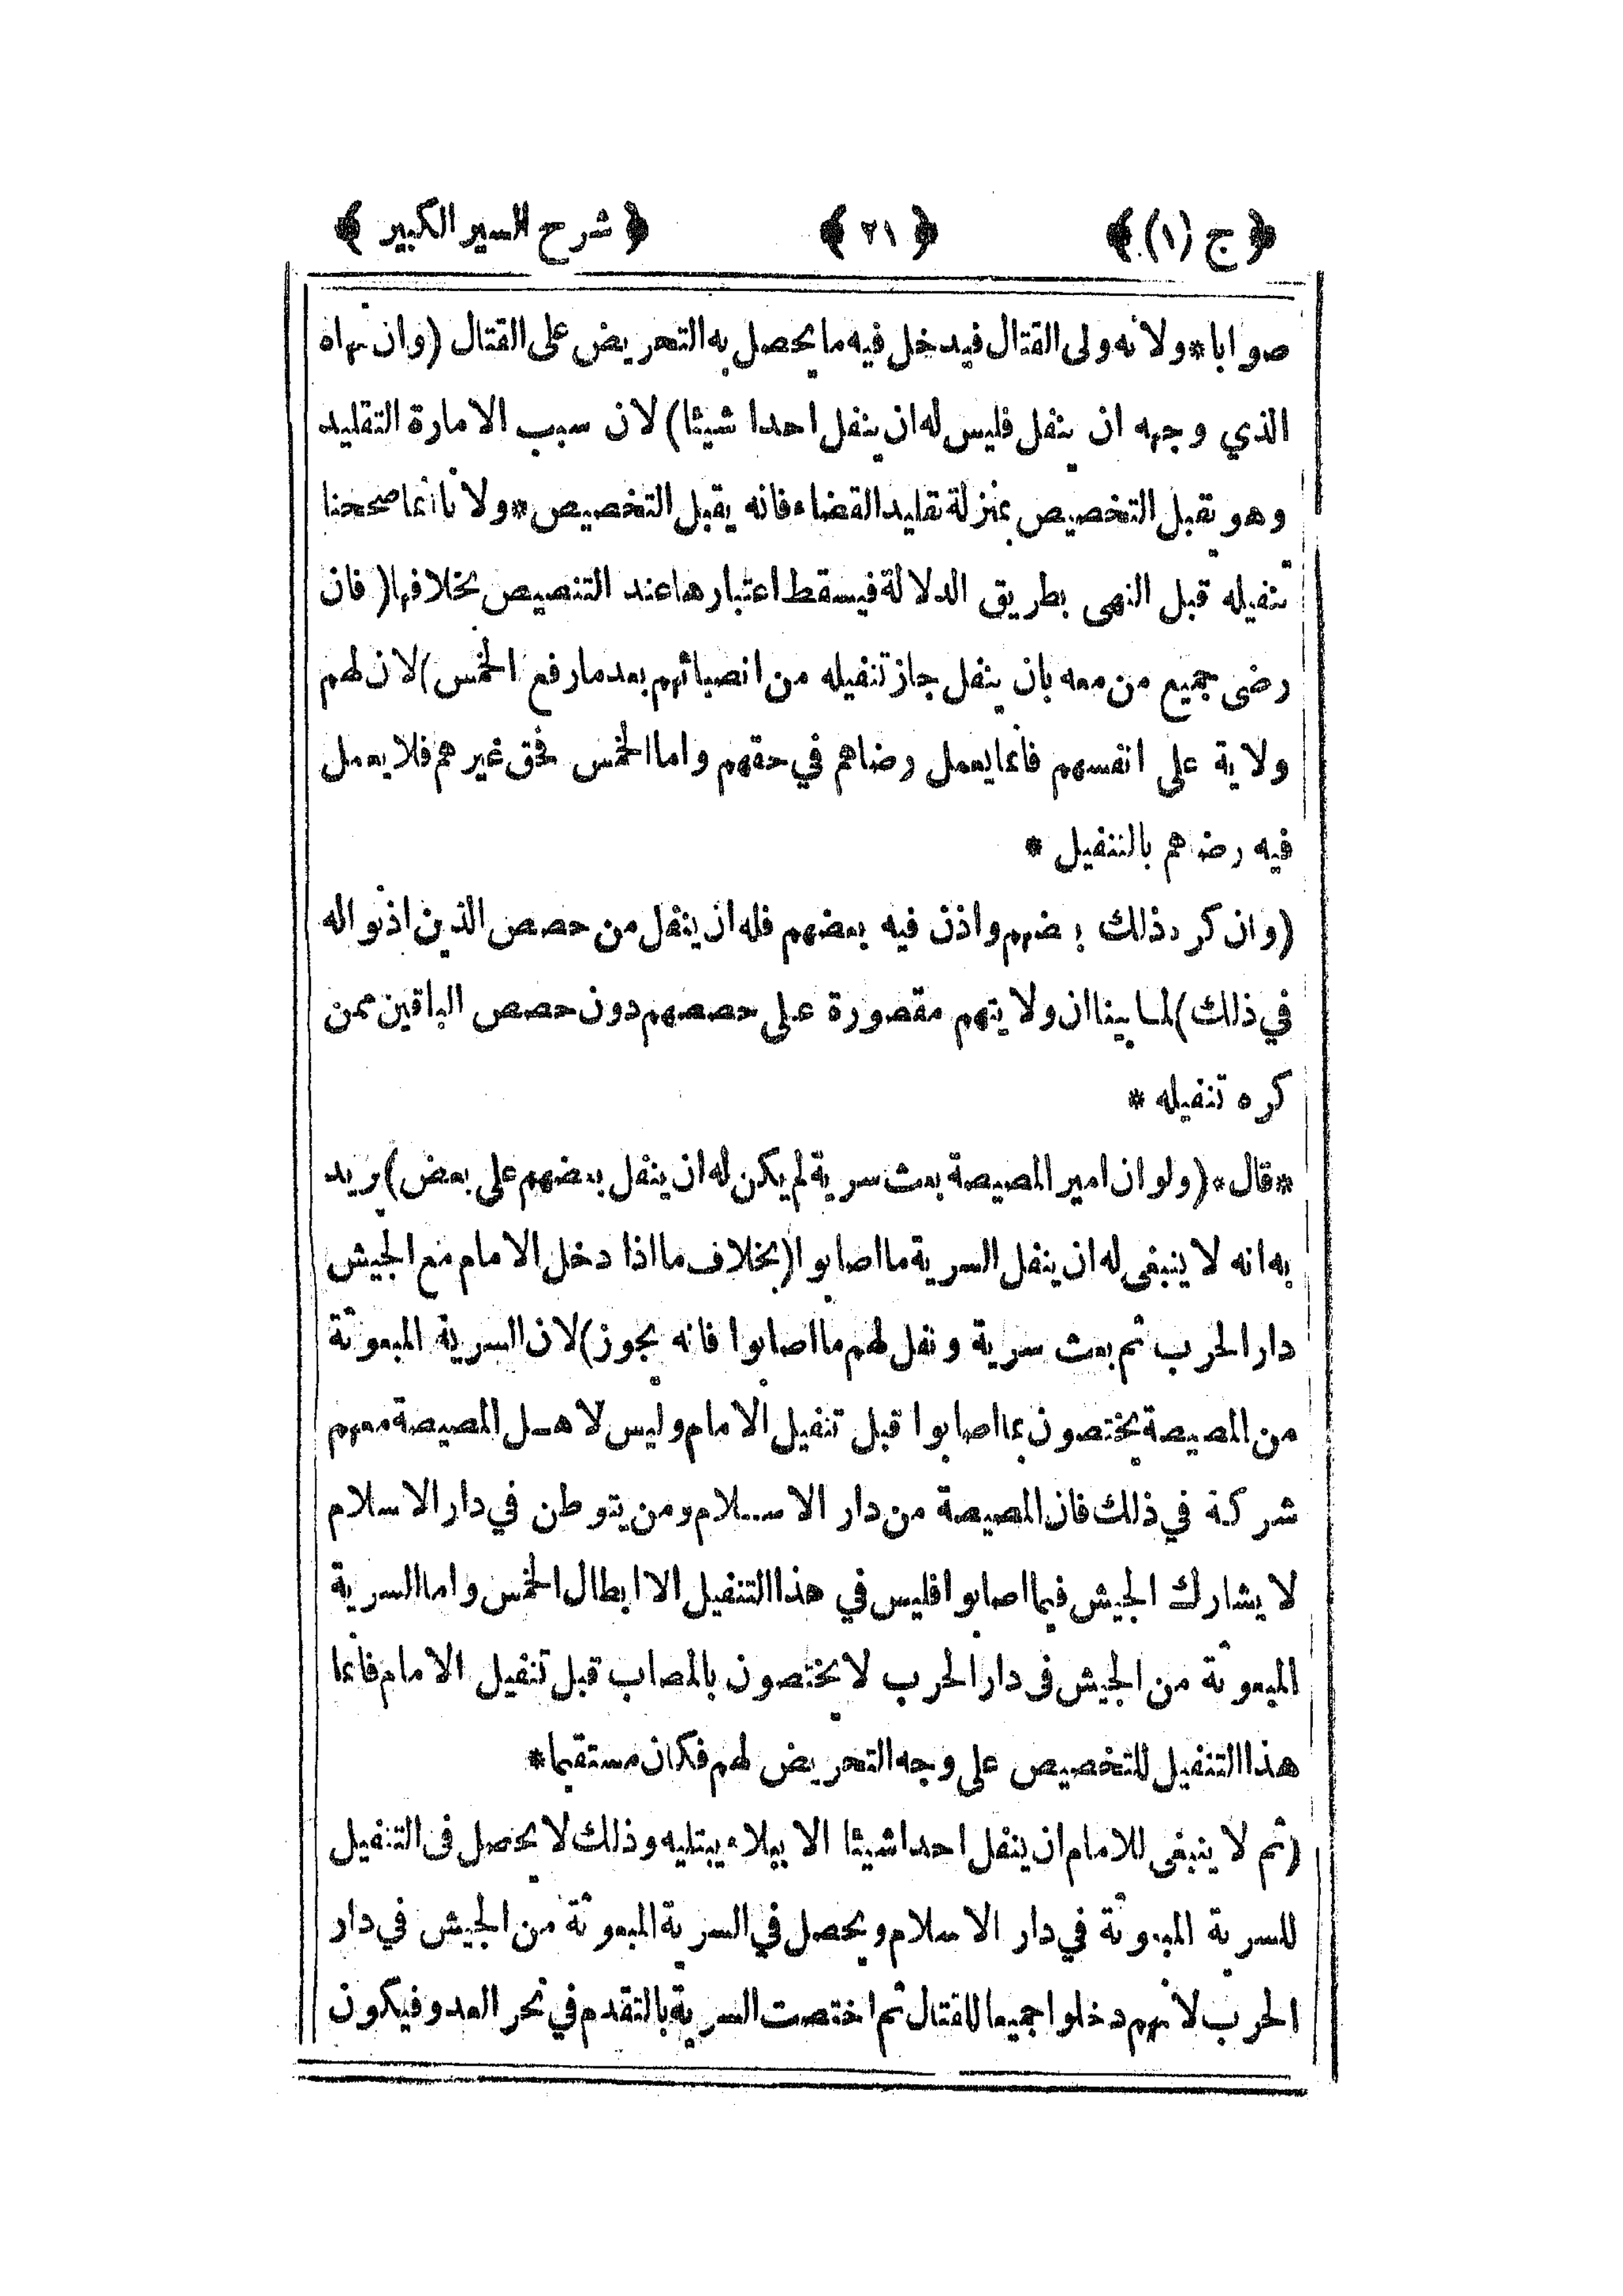 ﴿ ج (١) ﴾ ﴿ ٢١ ﴾ ﴿ شرح السير الكبير ﴾
صوابا * ولانه ولى القتال فيدخل فيه ما يحصل به التحريض على القتال (وان نهاه
الذي وجهه ان ينفل فليس له ان ينفل احدا شيئا) لان سبب الامارة التقليد
وهو يقبل التخصيص بمنزلة تقليد القضاء فانه يقبل التخصيص * ولانا انما صححنا
تنفيله قبل النهى بطريق الدلالة فيسقط اعتبارها عند التنصيص بخلافها (فان
رضى جميع من معه بان ينفل جاز تنفيله من انصبائهم بعد ما رفع الخمس) لان لهم
ولاية على انفسهم فانما يعمل رضاهم في حقهم واما الخمس فحق غيرهم فلا يعمل
فيه رضاهم بالتنفيل *
(وان كره ذلك بعضهم واذن فيه بعضهم فله ان ينفل من حصص الذين اذنوا له
في ذلك) لما بينا ان ولايتهم مقصورة على حصصهم دون حصص الباقين ممن
كره تنفيله *
* قال * (ولو ان امير المصيصة بعث سرية لم يكن له ان ينفل بعضهم على بعض) يريد
به انه لا ينبغى له ان ينفل السرية ما اصابوا (بخلاف ما اذا دخل الامام مع الجيش
دار الحرب ثم بعث سرية ونفل لهم ما اصابوا فانه يجوز) لان السرية المبعوثة
من المصيصة يختصون بما اصابوا قبل تنفيل الامام وليس لاهل المصيصة معهم
شركة في ذلك فان المصيصة من دار الاسلام ومن يتوطن في دار الاسلام
لا يشارك الجيش فيما اصابوا فليس في هذا التنفيل الا ابطال الخمس واما السرية
المبعوثة من الجيش فى دار الحرب لا يختصون بالمصاب قبل تنفيل الامام فانما
هذا التنفيل للتخصيص على وجه التحريض لهم فكان مستقيما *
(ثم لا ينبغى للامام ان ينفل احدا شيئا الا ببلاء يبتليه وذلك لا يحصل فى التنفيل
للسرية المبعوثة في دار الاسلام ويحصل في السرية المبعوثة من الجيش في دار
الحرب لانهم دخلوا جميعا للقتال ثم اختصت السرية بالتقدم في نحر العدو فيكون